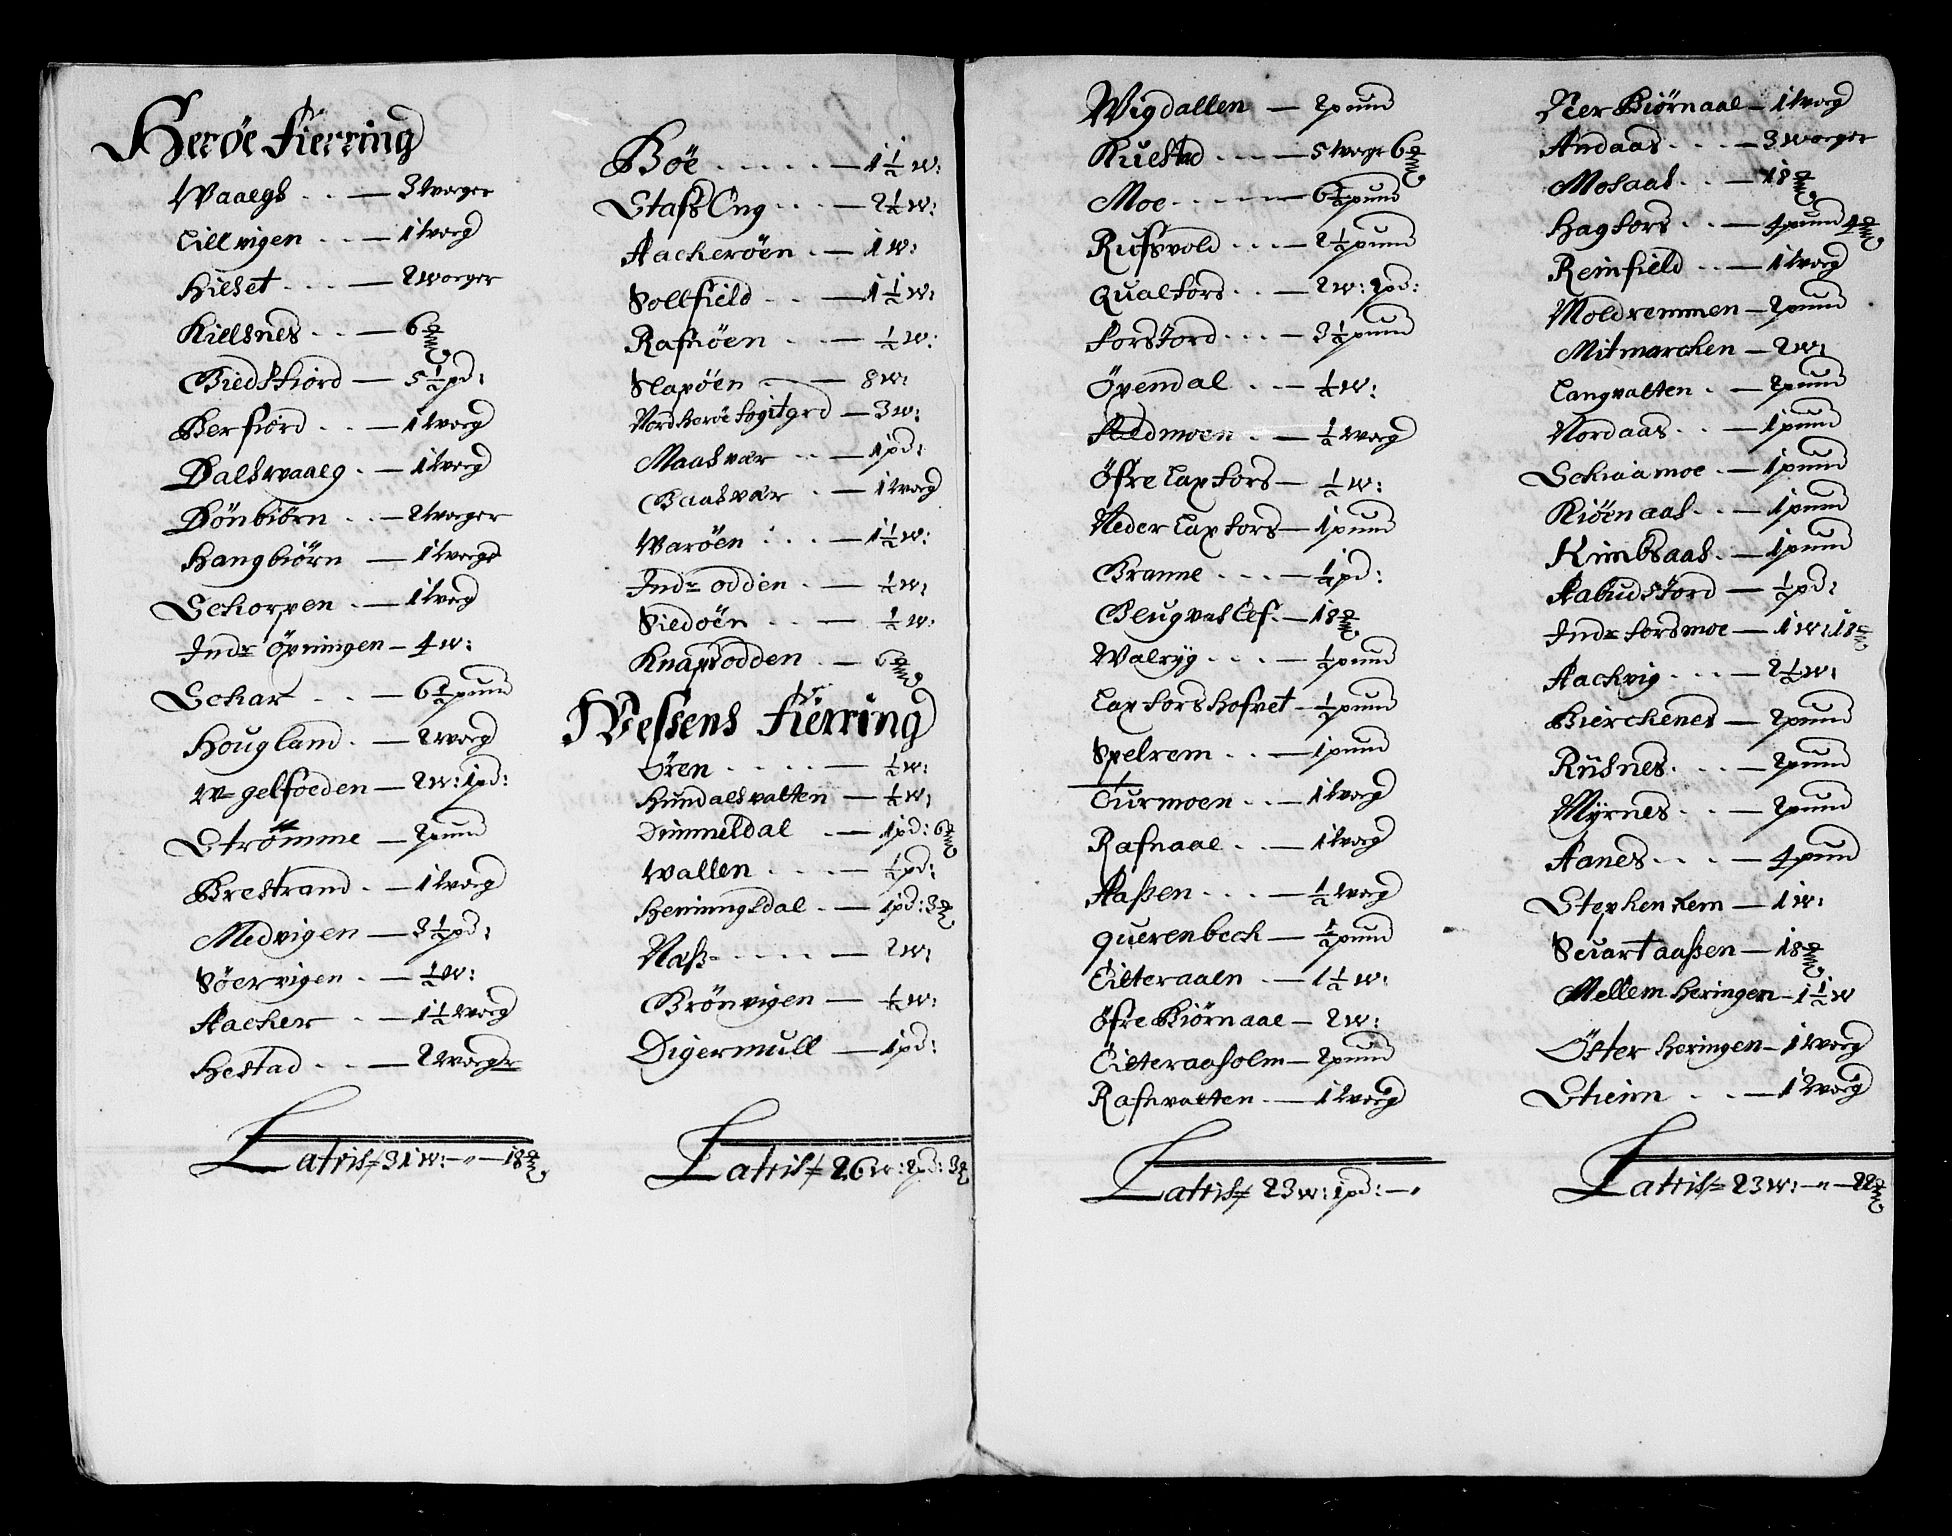 Herøe Fierring
Waalegh . . — 3 Worger
Lillvigen . . — 1 Worg
Hielset . . . — 2 Worger
Kielsnes . . — 6 ℔
Biedsfiord — 5½ pd:
Berfiord . . — 1 Worg
Dalswaaleg . — 1 Worg
Dönbiörn . . — 2 Worger
Hangbiörn — 1 Worg
Schorpen . — 1 Worg
Indr Öpningen — 4 w:
Schar . . — 6½ pund
Hougland . — 2 Worg
W gelfoeden — 2 w: 1 pd:
Strömme — 2 pund
Brestrand . — 1 Worg
Medvigen — 3½ pd:
Söervigen . — ½ w:
Aacher . — 1½ Worg
Hestad . . — 2 Worger
Latris 31 w: — „ — 18 ℔
Böe . . . . . — 1½ w:
Stafs Eng . . . — 2½ w:
Aackeröen . — 1 w:
Sollfield . . — 1½ w:
Rafnöen . . — ½ w:
Slapöen — 8 w:
Nordherøe fogitgrd — 3 w:
Maasvær . . — 1 pd:
Gaasvær . — 1 Worg
Waröen . . . — 1½ w:
Indr odden . — ½ w:
Siedöen . . — ½ w:
Knapsodden . — 6 ℔
Wefsens Fierring
Ören . . . . — ½ w:
Hundalsvatten — ½ w:
Dimmeldal . — 1 pd: 6 ℔
Wallen . . . — ½ pd:
Henningsdal . — 1 pd: 3 ℔
Næss . . . . . — 2 w:
Brönvigen — ½ w:
Digermull — 1 pd:
Latris 26 w: 2 pd: 3 ℔
Wigdallen — 2 pund
Kuestad . . . — 5 Worge 6 ℔
Moe . . . . — 6½ pund
Rufsvold . . . — 2½ pund
Qualfors . . — 2 w: 2 pd:
Forsford . . . — 3½ pund
Öpendal . . — ½ w:
Fieldmoen . — ½ Worg
Öfre Laxfors — ½ w:
Neder Laxfors — 1 pund
Granne . . . — ½ pd:
Gleugvas Elf . — 18 ℔
Walryg . . . — ½ pund
Laxfors hofvet — ½ pund
Spelrem . . — 1 pund
Turmoen . . — 1 Worg
Rafnaae . . — 1 Worg
Aassen . . . — ½ Worg
Querenbech — ½ pund
Eiteraaen . — 1½ w:
Öfre Biörnaae — 2 w:
Eiteraasolm — 2 pund
Rafnvatten . — 1 Worg
Latris 23 w: 1 pd: — „
Ner Biörnaae — 1 Worg
Andaas . . . — 3 Worger
Mosaas . . — 18 ℔
Hagfors . . — 4 pund 4 ℔
Reinfield . . — 1 Worg
Moldremmen — 2 pund
Mitmarcken — 2 w:
Langvatten . — 2 pund
Nordaas . . — 1 pund
Schiaamoe . — 1 pund
Kiöenaas . . — 1 pund
Kimbsaas . — 1 pund
Aabudsford — ½ pd:
Indr forsmoe — 1 w: 18 ℔
Aackvig . . . — 2½ w:
Bierckenes — 2 pund
Riisnes . . — 2 pund
Myrnes . . — 2 pund
Aanes . . . — 4 pund
Stephen rem — 1 w:
Suartaassen — 18 ℔
Mellem Heringen — 1½ w
Öster Heringen — 1 Worg
Stienn . . — 1 Worg
Latris 23 w: — „ — 22 ℔